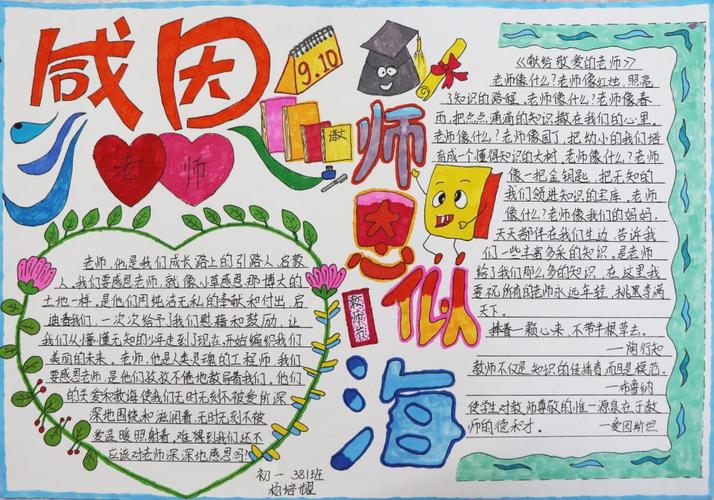 感因
9.10
老师
语文
师恩似海
教师节
老师,他是我们成长路上的引路人,启蒙
人,我们要感恩老师,就像小草感恩那博大的
土地一样,是他们用纯洁无私的奉献和付出,启
迪着我们,一次次给予了我们慰藉和鼓励,让
我们从懵懂无知的少年走到了现在,开始编织我们
美丽的未来。老师,他是人类灵魂的工程师,我们
要感恩老师,是他们孜孜不倦地教导着我们,他们
的关爱和教诲使我们无时无刻不被爱所深
深地围绕和滋润着,无时无刻不被
爱温暖照射着,难得到我们还不
应该对老师深深地感恩吗?
初一381班
杨培耀
《献给敬爱的老师》
老师像什么?老师像红烛,照亮
了知识的路程,老师像什么?老师像春
雨,把点点滴滴的知识撒在我们的心里,
老师像什么?老师像园丁,把幼小的我们培
育成一个懂得知识的大树,老师像什么?老师
像一把金钥匙,把无知的
我们领进知识的宝库,老师
像什么?老师像我们的妈妈,
天天都伴在我们生边,告诉我
们一些丰富多采的知识。是老师
给了我们那么多的知识,在这里我
要祝所有的老师永远年轻,桃李满
天下。
捧着一颗心来,不带半根草去。
—陶行知
教师不仅是知识的传播者,而且是模范。
—布鲁纳
使学生对教师尊敬的惟一源泉在于教
师的德和才。 —爱因斯坦